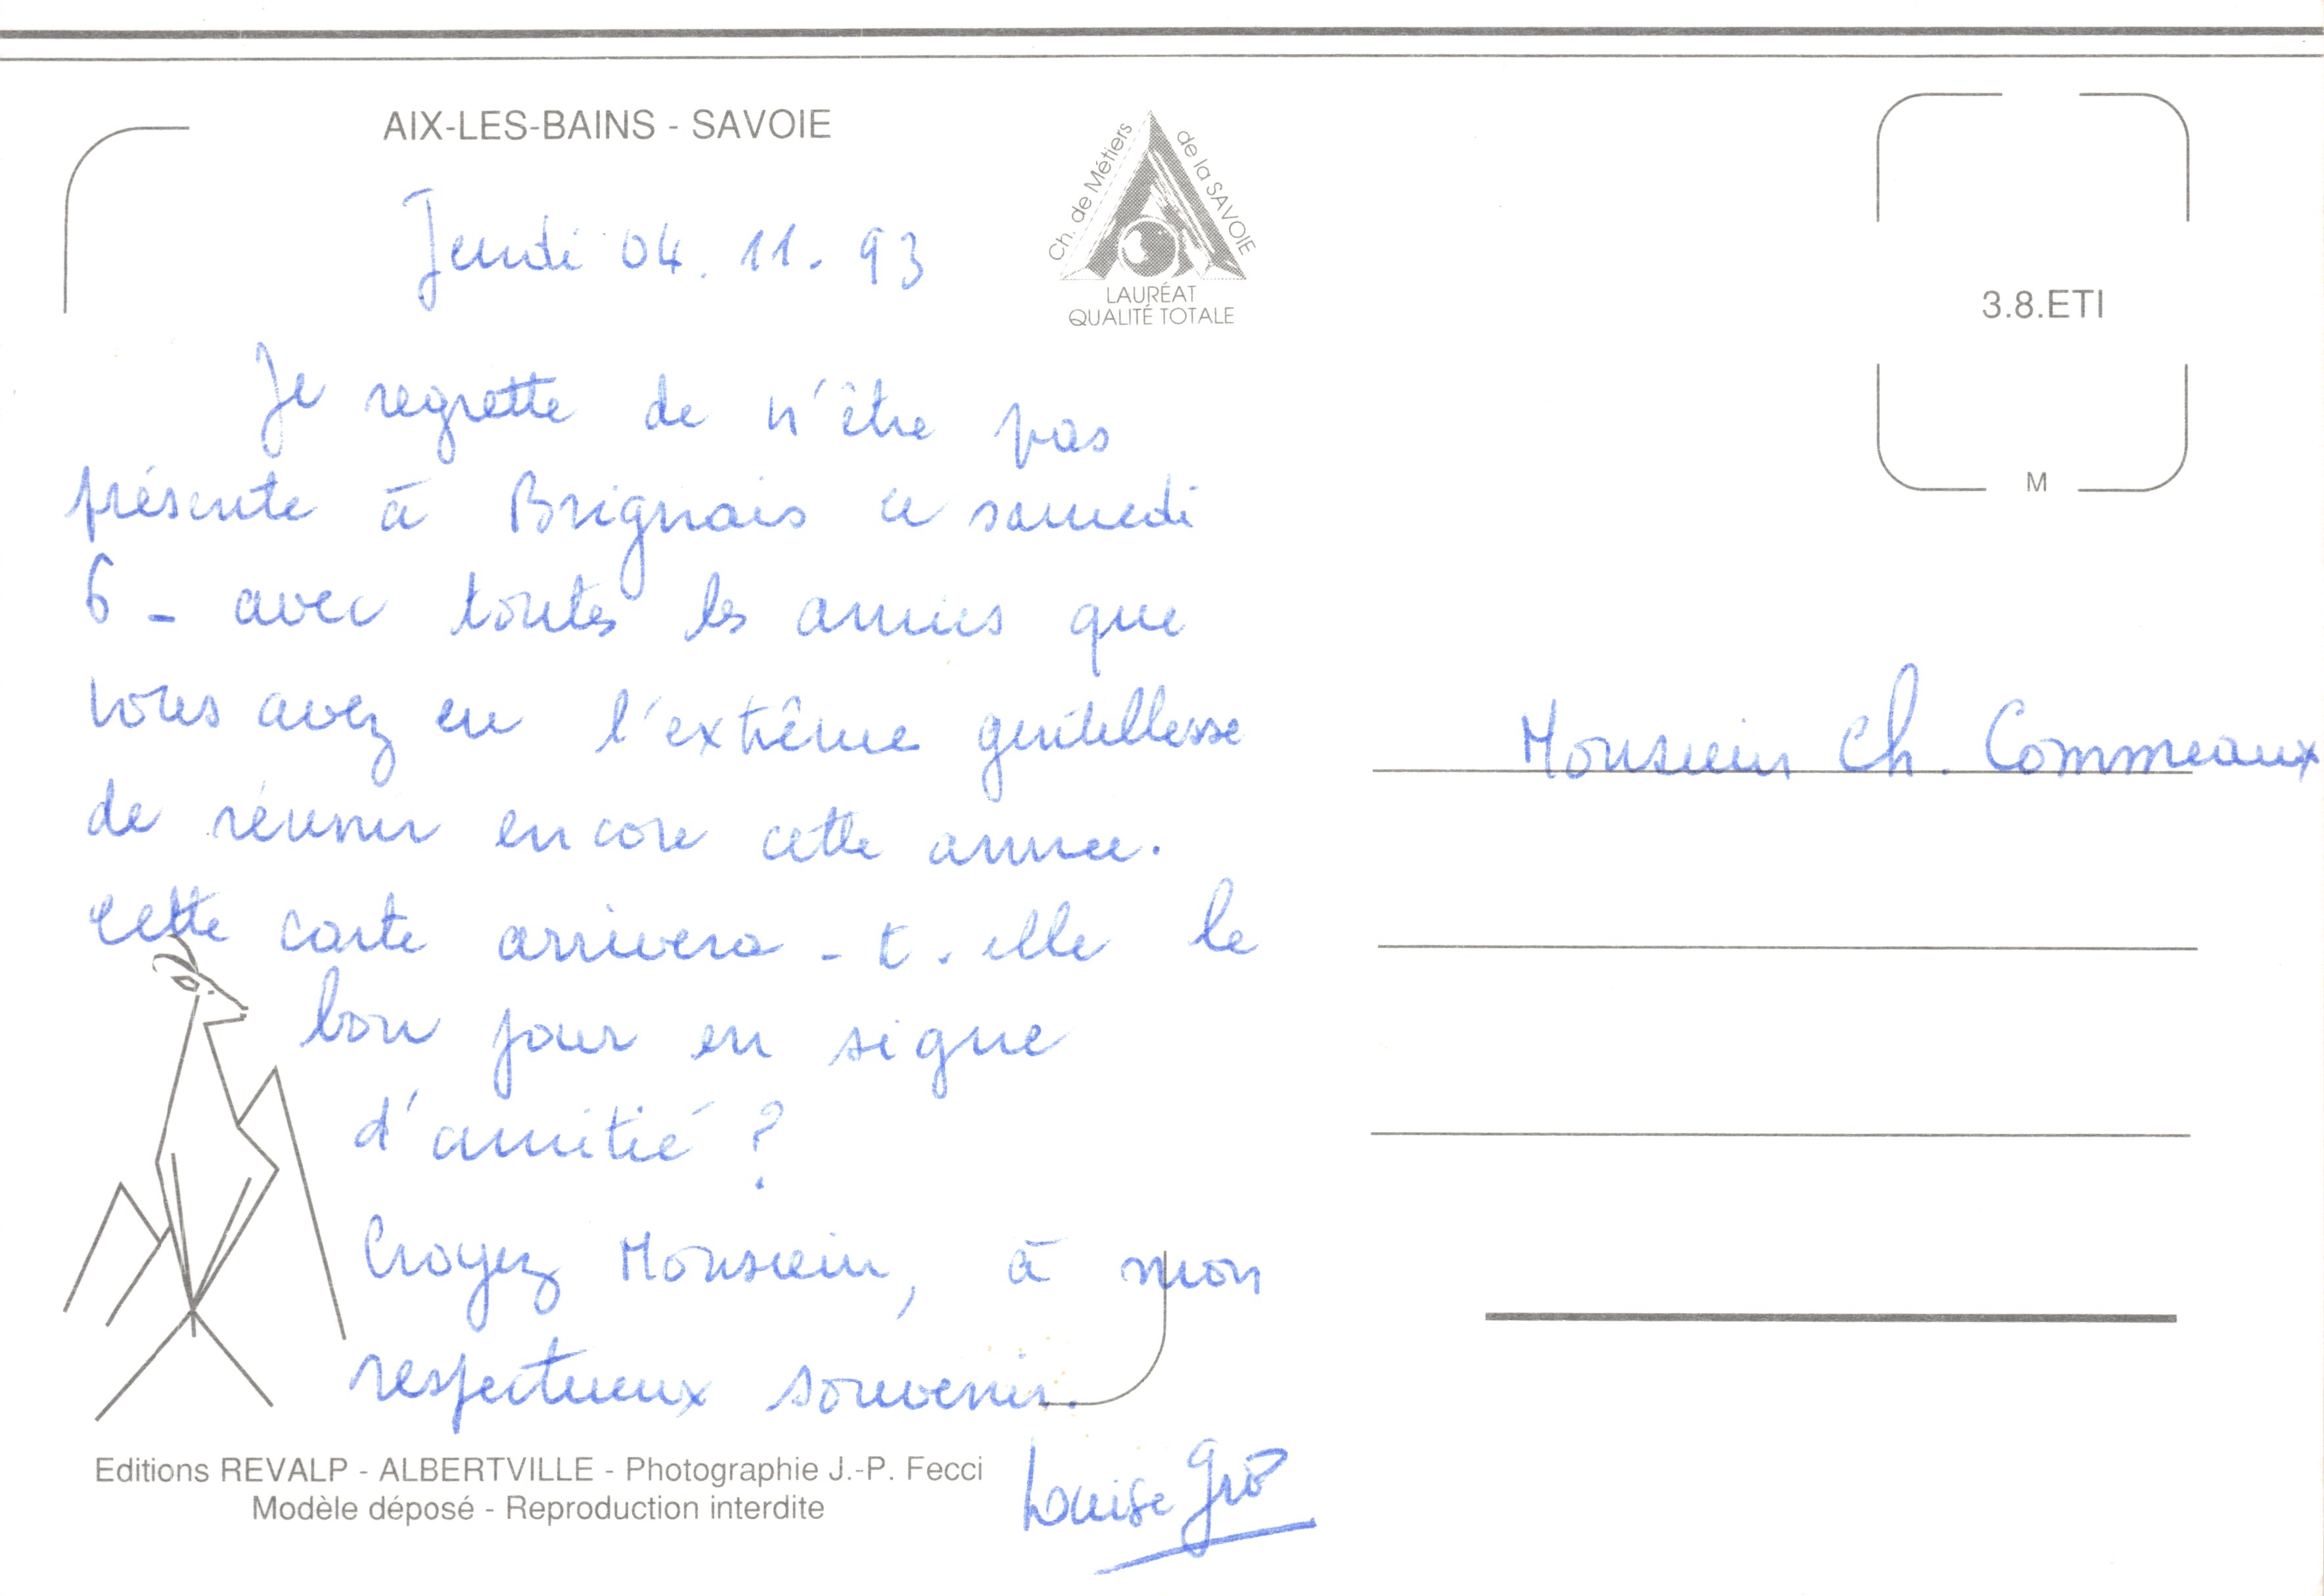 AIX-LES-BAINS - SAVOIE
Ch. de Métiers de la SAVOIE
LAURÉAT
QUALITÉ TOTALE
3.8.ETI
M
Jeudi 04. 11. 93
Je regrette de n'être pas
présente à Brignais ce samedi
6 - avec toutes les amies que
vous avez eu l'extrême gentillesse
de réunir encore cette année.
Cette carte arrivera - t - elle le
bon jour en signe
d'amitié ?
Croyez Monsieur, à mon
respectueux souvenir.
Louise
Monsieur Ch. Commeaux
Editions REVALP - ALBERTVILLE - Photographie J.-P. Fecci
Modèle déposé - Reproduction interdite